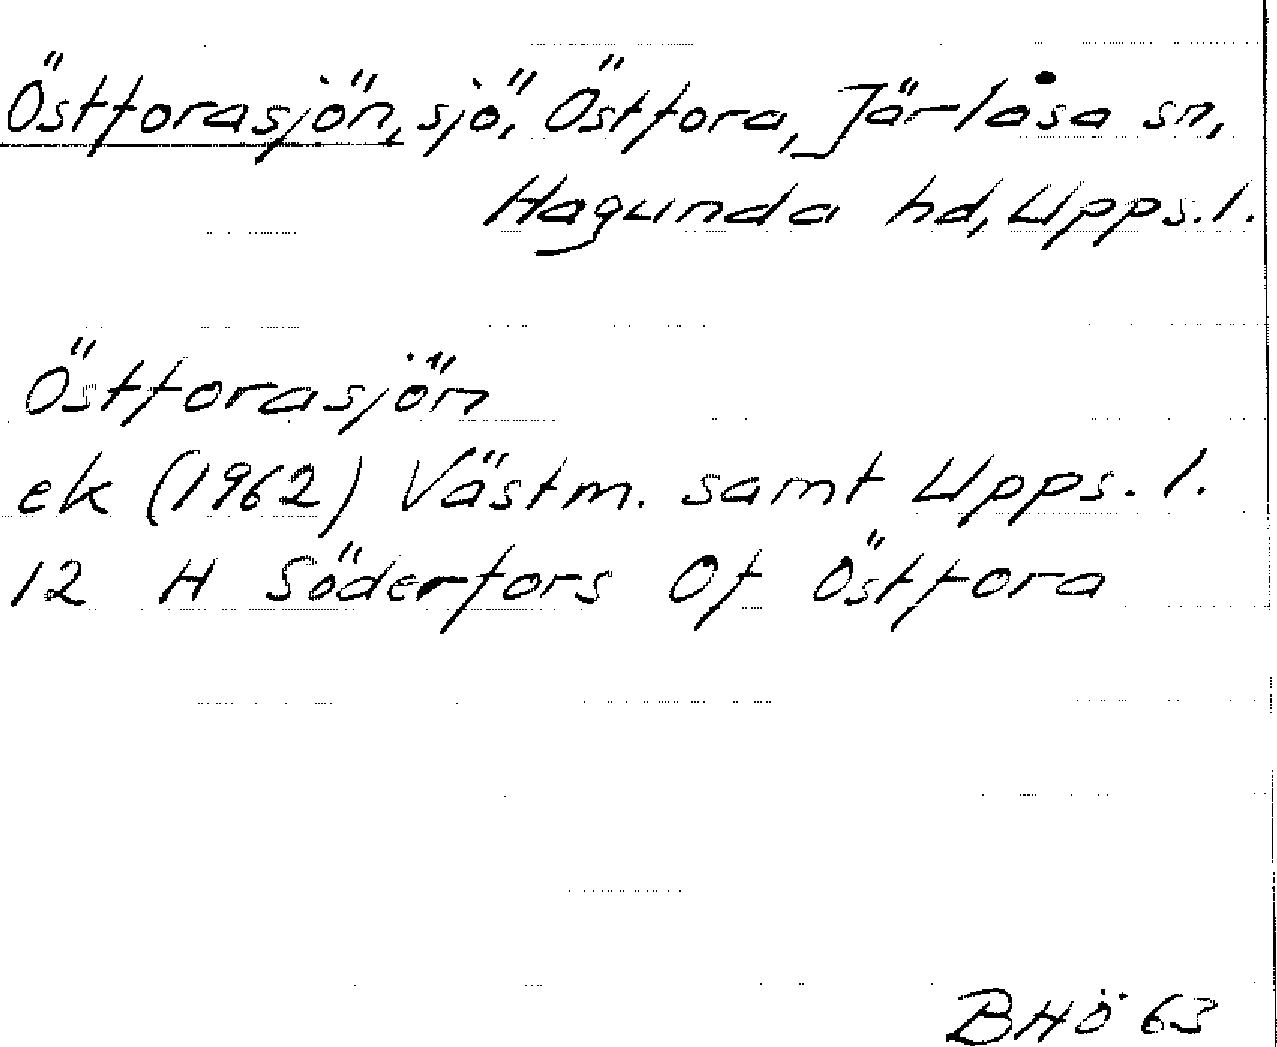 Östforasjön, sjö, Östfora, Järlåsa sn,
Hagunda hd, Upps. l.
Östforasjön
ek (1962) Västm. samt Upps. l.
12 H Söderfors 0f Östfora
BHÖ 63